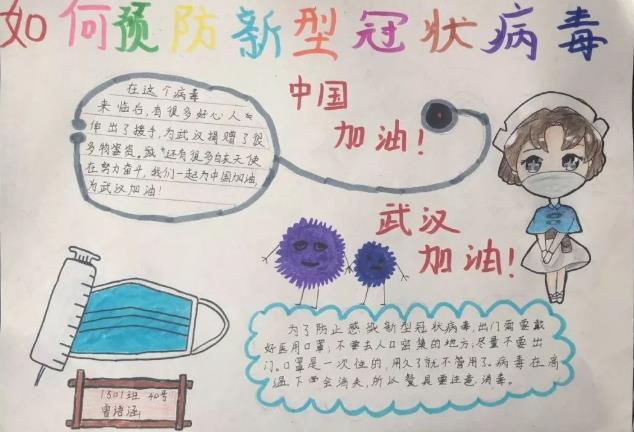 如何预防新型冠状病毒
在这个病毒
来临后,有很多好心人
伸出了援手,为武汉捐赠了很
多物资。还有很多白衣天使
在努力奋斗,我们一起为中国加油,
为武汉加油!
中国
加油!
武汉
加油!
为了防止感染新型冠状病毒,出门需要戴
好医用口罩,不要去人口密集的地方,尽量不要出
门。口罩是一次性的,用久了就不管用了。病毒在高
温下会消失,所以餐具要注意消毒。
1501班 40号
曾诗涵